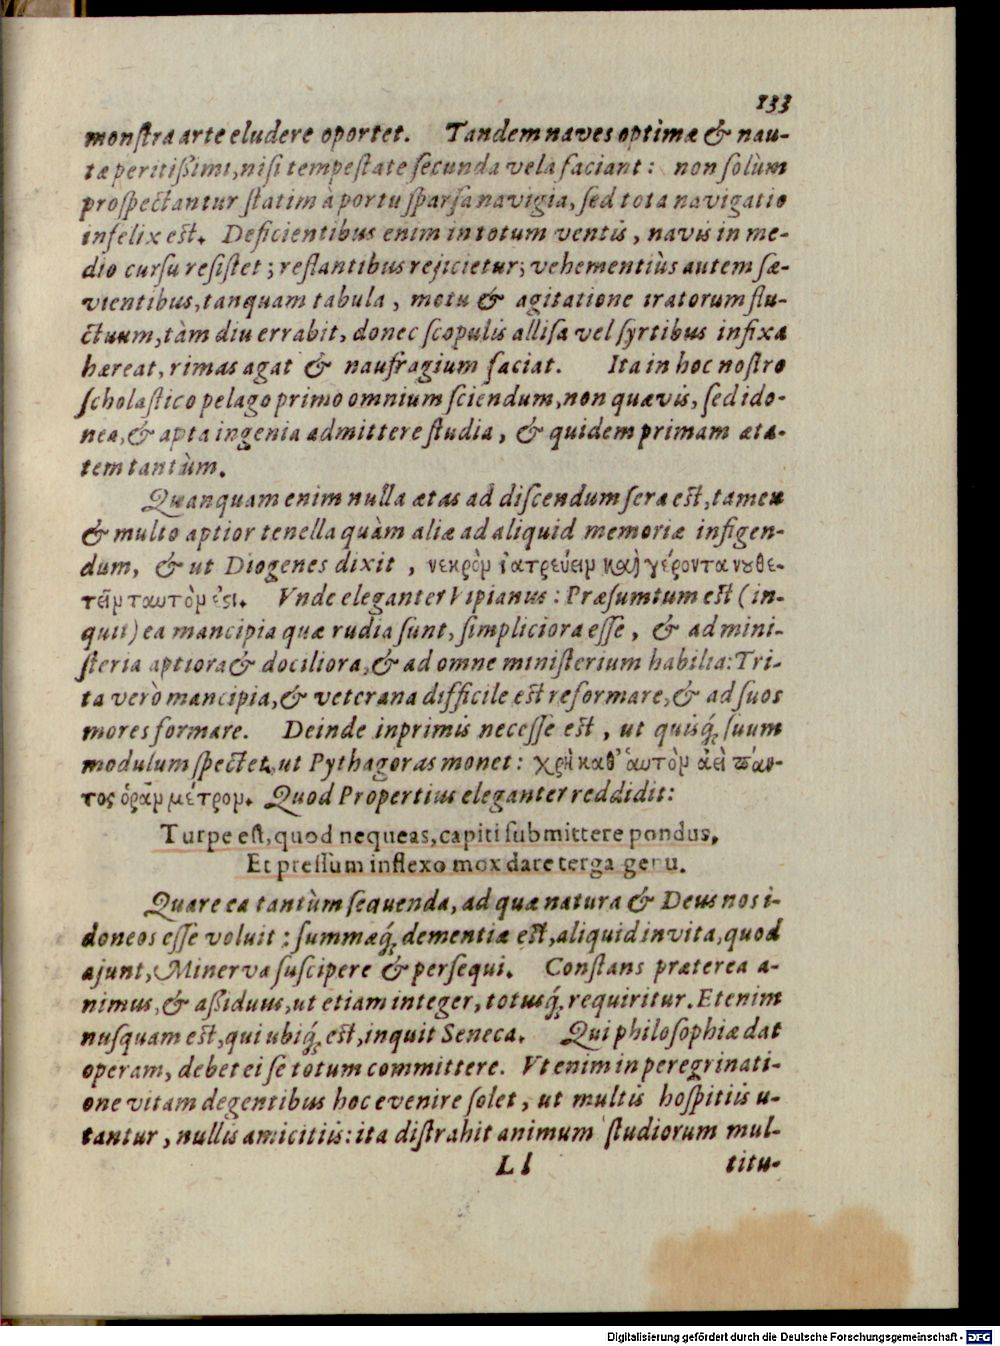 133
monſtra arte eludere oportet. Tandem naves optimæ & nau-
tæ peritißimi, niſi tempeſtate ſecunda vela faciant: non ſolùm
proſpectantur ſtatim à portu ſparſa navigia, ſed tota navigatio
infelix eſt. Deficientibus enim in totum ventis, navis in me-
dio curſu reſiſtet; reflantibus rejicietur; vehementiùs autem ſæ-
vientibus, tanquam tabula, motu & agitatione iratorum flu-
ctuum, tàm diu errabit, donec ſcopulis alliſa vel ſyrtibus infixa
hæreat, rimas agat & naufragium faciat. Ita in hoc noſtro
ſcholaſtico pelago primo omnium ſciendum, non quævis, ſed ido-
nea, & apta ingenia admittere ſtudia, & quidem primam æta-
tem tantùm.
Quanquam enim nulla ætas ad diſcendum ſera eſt, tamen
& multo aptior tenella quàm aliæ ad aliquid memoriæ infigen-
dum, & ut Diogenes dixit, νεκρὸμ ἰατρεύειμ καὶ γέροντα νουθε-
τεῖμ ταυτὸμ ἐςι. Vnde eleganter Vlpianus: Præſumtum eſt (in-
quit) ea mancipia quæ rudia ſunt, ſimpliciora eſſe, & ad mini-
ſteria aptiora & dociliora, & ad omne miniſterium habilia: Tri-
ta verò mancipia, & veterana difficile eſt reformare, & ad ſuos
mores formare. Deinde inprimis neceſſe eſt, ut quisq́; ſuum
modulum ſpectet, ut Pythagoras monet: χρὴ καθ' ἁυτὸμ ἀεὶ πάν-
τος ὁρᾶμ μέτρομ. Quod Propertius eleganter reddidit:
Turpe eſt, quod nequeas, capiti ſubmittere pondus,
Et preſſum inflexo mox dare terga genu.
Quare ea tantùm ſequenda, ad quæ natura & Deus nos i-
doneos eſſe voluit: ſummæq́; dementiæ eſt, aliquid invita, quod
ajunt, Minerva ſuſcipere & perſequi. Conſtans præterea a-
nimus, & aßiduus, ut etiam integer, totusq́; requiritur. Etenim
nuſquam eſt, qui ubiq́; eſt, inquit Seneca. Qui philoſophiæ dat
operam, debet ei ſe totum committere. Vt enim in peregrinati-
one vitam degentibus hoc evenire ſolet, ut multis hoſpitiis u-
tantur, nullis amicitiis: ita diſtrahit animum ſtudiorum mul-
Ll titu-
Digitalisierung gefördert durch die Deutsche Forschungsgemeinschaft - DFG